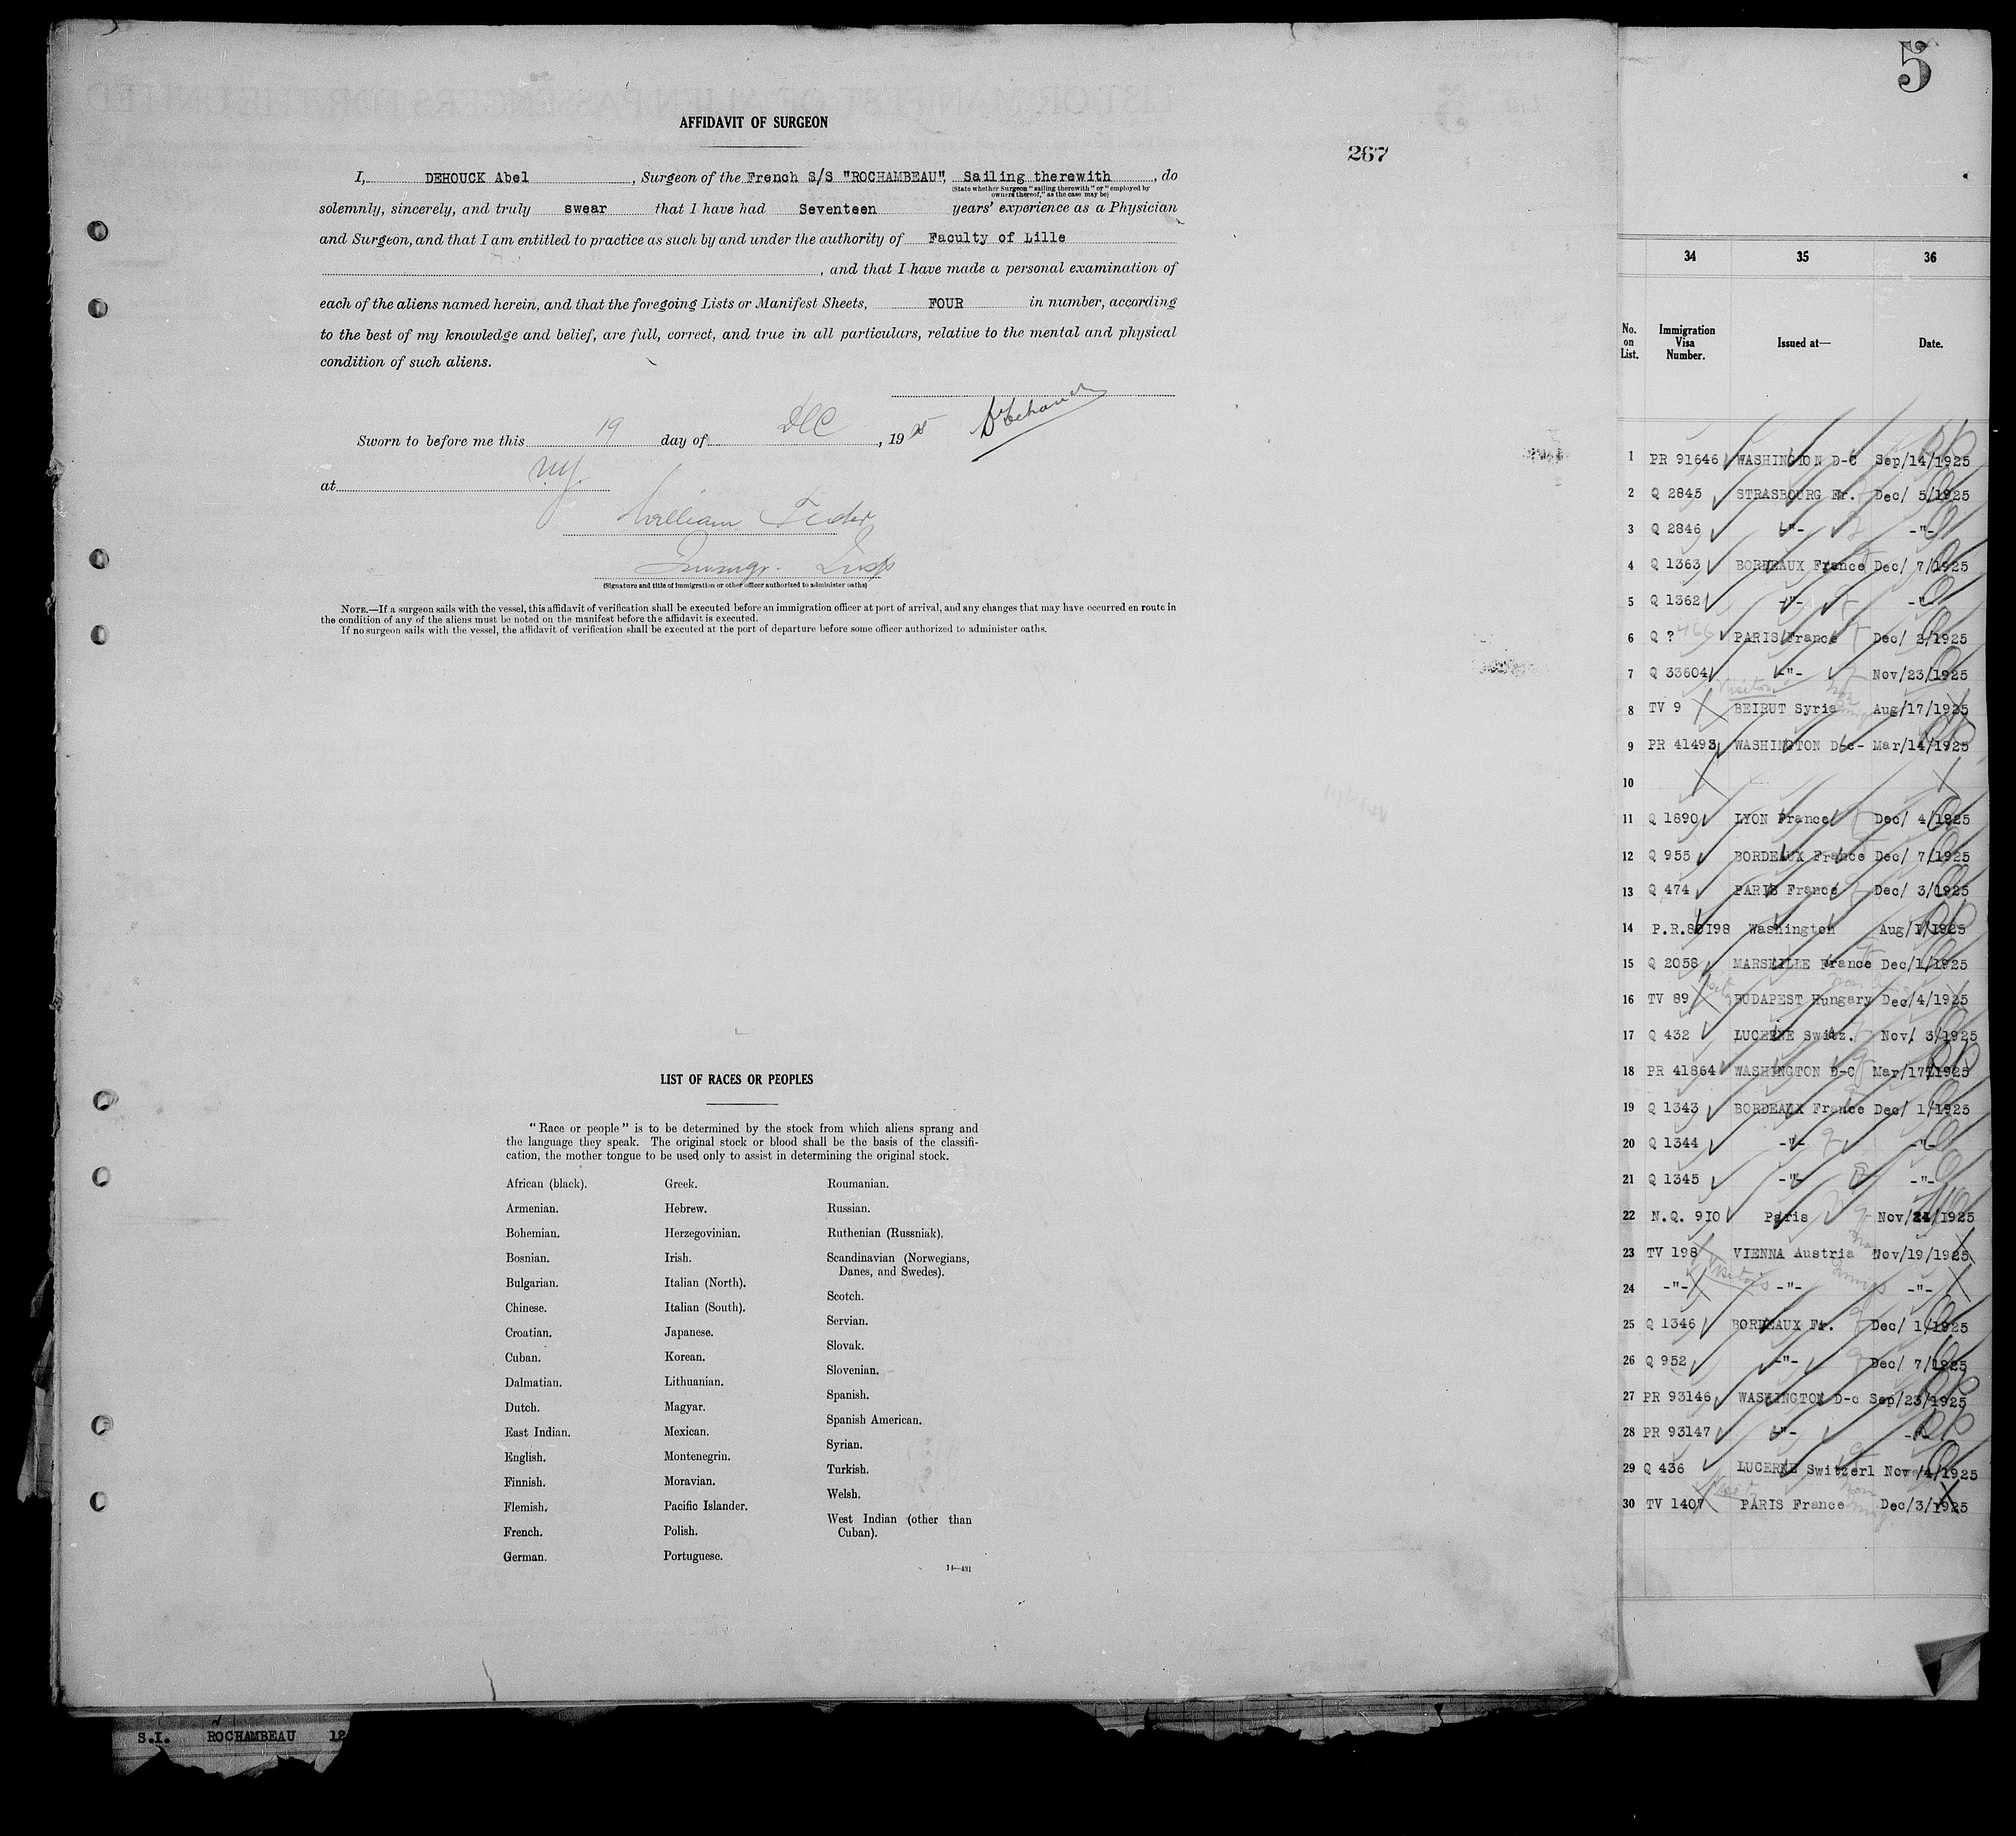 5
AFFIDAVIT OF SURGEON
267
I, DEHOUCK Abel, Surgeon of the French S/S "ROCHAMBEAU", Sailing therewith, do
(State whether Surgeon "sailing therewith" or "employed by
owners thereof," as the case may be)
solemnly, sincerely, and truly swear that I have had Seventeen years' experience as a Physician
and Surgeon, and that I am entitled to practice as such by and under the authority of Faculty of Lille
, and that I have made a personal examination of
each of the aliens named herein, and that the foregoing Lists or Manifest Sheets, FOUR in number, according
to the best of my knowledge and belief, are full, correct, and true in all particulars, relative to the mental and physical
condition of such aliens.
Sworn to before me this 19 day of Dec, 1925
at NY
William
Immigr. Insp
(Signature and title of immigration or other officer authorized to administer oaths)
NOTE.—If a surgeon sails with the vessel, this affidavit of verification shall be executed before an immigration officer at port of arrival, and any changes that may have occurred en route in
the condition of any of the aliens must be noted on the manifest before the affidavit is executed.
If no surgeon sails with the vessel, the affidavit of verification shall be executed at the port of departure before some officer authorized to administer oaths.
LIST OF RACES OR PEOPLES
"Race or people" is to be determined by the stock from which aliens sprang and
the language they speak. The original stock or blood shall be the basis of the classifi-
cation, the mother tongue to be used only to assist in determining the original stock.
African (black).
Armenian.
Bohemian.
Bosnian.
Bulgarian.
Chinese.
Croatian.
Cuban.
Dalmatian.
Dutch.
East Indian.
English.
Finnish.
Flemish.
French.
German.
Greek.
Hebrew.
Herzegovinian.
Irish.
Italian (North).
Italian (South).
Japanese.
Korean.
Lithuanian.
Magyar.
Mexican.
Montenegrin.
Moravian.
Pacific Islander.
Polish.
Portuguese.
Roumanian.
Russian.
Ruthenian (Russniak).
Scandinavian (Norwegians,
Danes, and Swedes).
Scotch.
Servian.
Slovak.
Slovenian.
Spanish.
Spanish American.
Syrian.
Turkish.
Welsh.
West Indian (other than
Cuban).
14—431
S.I. ROCHAMBEAU 12
34 35 36
No. on List. Immigration Visa Number. Issued at— Date.
1 PR 91646 WASHINGTON D-C Sep/14/1925
2 Q 2845 STRASBOURG Fr. Dec/ 5/1925
3 Q 2846 -"- -"-
4 Q 1363 BORDEAUX France Dec/ 7/1925
5 Q 1362 -"- -"-
6 Q ? 466 PARIS France Dec/ 2/1925
7 Q 33604 -"- Nov/23/1925
Visitor
8 TV 9 BEIRUT Syria Aug/17/1925
9 PR 41493 WASHINGTON D-c- Mar/14/1925
10
11 Q 1890 LYON France Dec/ 4/1925
12 Q 955 BORDEAUX France Dec/ 7/1925
13 Q 474 PARIS France Dec/ 3/1925
14 P.R. Washington Aug/1/1925
15 Q 2058 MARSEILLE France Dec/1/1925
16 TV 89 BUDAPEST Hungary Dec/4/1925
17 Q 432 LUCERNE Switz. Nov. 3/1925
18 PR 41864 WASHINGTON D-C Mar/17/1925
19 Q 1343 BORDEAUX France Dec/ 1/1925
20 Q 1344 -"- -"-
21 Q 1345 -"- -"-
22 N.Q. 910 Paris Nov/24/1925
23 TV 198 VIENNA Austria Nov/19/1925
24 -"- Visitors -"- -"-
25 Q 1346 BORDEAUX Fr. Dec/ 1/1925
26 Q 952 -"- Dec/ 7/1925
27 PR 93146 WASHINGTON D-c Sep/23/1925
28 PR 93147 -"- -"-
29 Q 436 LUCERNE Switzerl Nov/4/1925
30 TV 1407 PARIS France Dec/3/1925